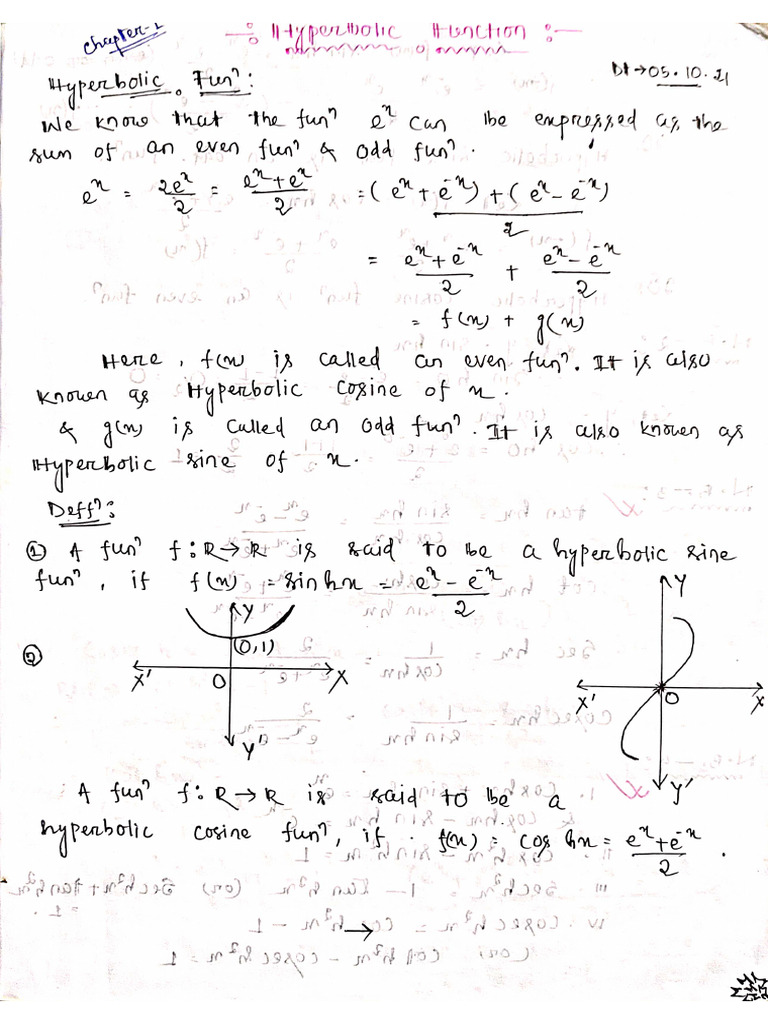 Chapter-1
Hyperbolic Function :-
Dt→05.10.21
Hyperbolic Funⁿ:
We know that the funⁿ eˣ can be expressed as the
sum of an even funⁿ & odd funⁿ.
eˣ = 2eˣ/2 = (eˣ+eˣ)/2 = ((eˣ+e⁻ˣ)+(eˣ-e⁻ˣ))/2
= (eˣ+e⁻ˣ)/2 + (eˣ-e⁻ˣ)/2
= f(x) + g(x)
Here, f(x) is called an even funⁿ. It is also
known as Hyperbolic cosine of x.
& g(x) is called an odd funⁿ. It is also known as
Hyperbolic sine of x.
Deffⁿ:
① A funⁿ f:R→R is said to be a hyperbolic sine
funⁿ, if f(x) = sinhx = (eˣ-e⁻ˣ)/2
②
Y
(0,1)
X' O X
Y'
Y
X' O X
Y'
A funⁿ f:R→R is said to be a
hyperbolic cosine funⁿ, if f(x) = coshx = (eˣ+e⁻ˣ)/2.